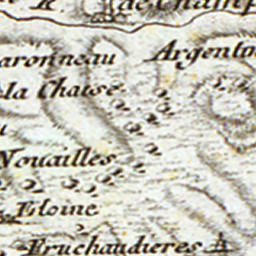 R. de Champ
aronneau
Argento
la Chause
Nouailles
Eloine
Fruchaudieres